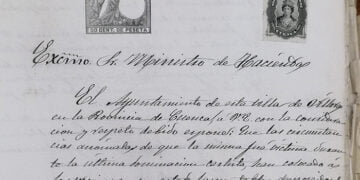 50 CENT. DE PESETA
Exmo. Sr. Ministro de Hacienda
El Ayuntamiento de esta villa de
en la Provincia de Cuenca á V.E. con la considera
cion y respeto debido expone: Que las circunstan
cias anormales de que la misma fué victima duran
te la última dominacion carlista, han colocado á